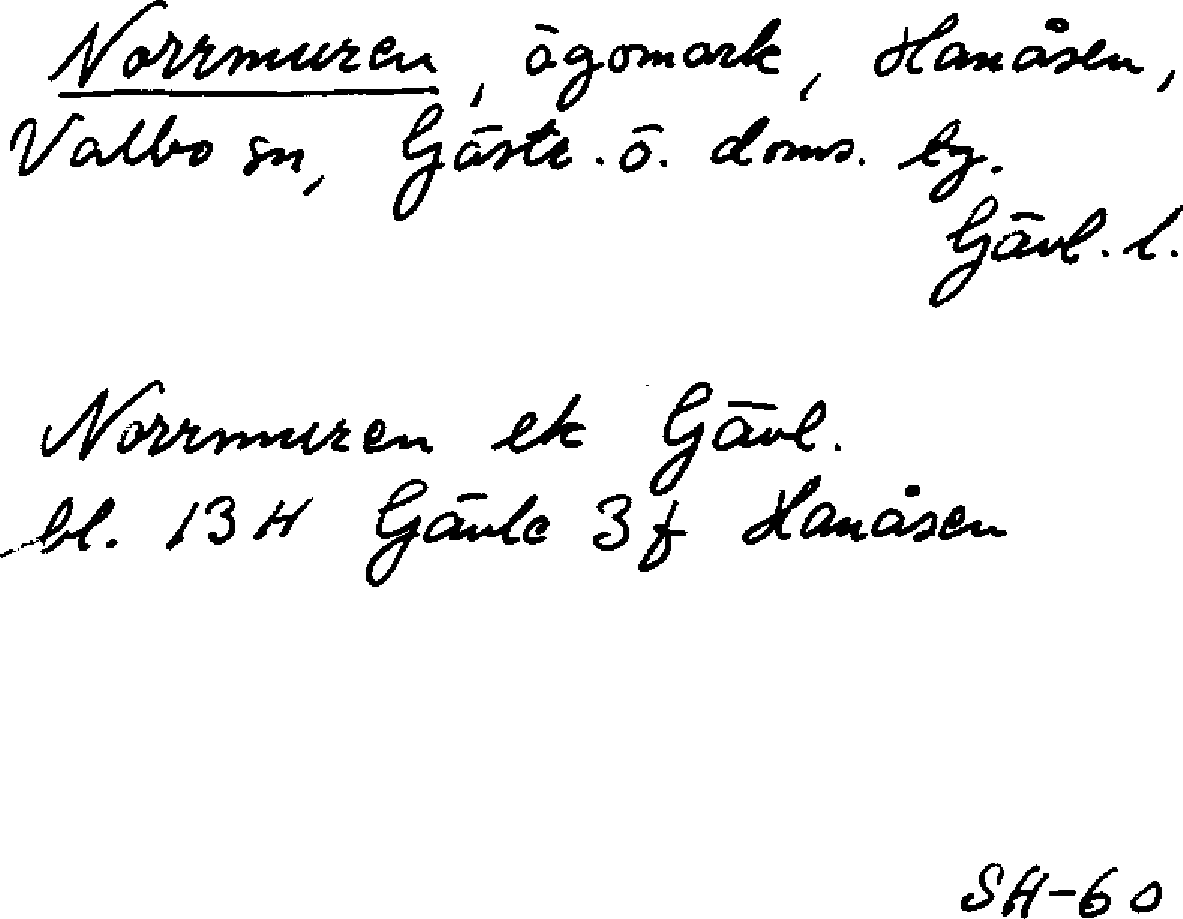 Norrmuren, ägomark, Hanåsen,
Valbo sn, Gästr. ö. doms. lg.
Gävl. l.
Norrmuren ek Gävl.
bl. 13 H Gävle 3f Hanåsen
SH-60